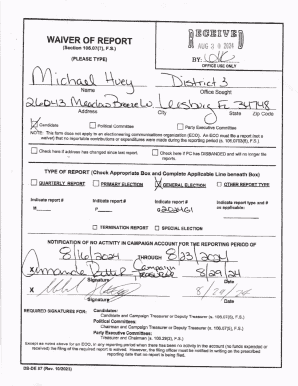 WAIVER OF REPORT
(Section 106.07(7), F.S.)
(PLEASE TYPE)
RECEIVED
AUG 3 0 2024
BY:
OFFICE USE ONLY
Michael Huey
District 3
Name
Office Sought
26043 Meadow Breeze Ln Leesburg FL 34748
Address
City
State
Zip Code
Candidate
Political Committee
Party Executive Committee
NOTE: This form does not apply to an electioneering communications organization (ECO). An ECO must file a report (not a
waiver) that no reportable contributions or expenditures were made during the reporting period (s. 106.0703(6), F.S.).
Check here if address has changed since last report.
Check here if PC has DISBANDED and will no longer file
reports.
TYPE OF REPORT (Check Appropriate Box and Complete Applicable Line beneath Box)
QUARTERLY REPORT
PRIMARY ELECTION
GENERAL ELECTION
OTHER REPORT TYPE
Indicate report #
Indicate report #
Indicate report #
Indicate report type and #
as applicable:
M
P
TERMINATION REPORT
SPECIAL ELECTION
NOTIFICATION OF NO ACTIVITY IN CAMPAIGN ACCOUNT FOR THE REPORTING PERIOD OF
8/16/2024 THROUGH 8/23/2024
X
Campaign
Treasurer
8/29/24
Signature
Date
X
8/29/24
Signature
Date
REQUIRED SIGNATURES FOR:
Candidates:
Candidate and Campaign Treasurer or Deputy Treasurer (s. 106.07(5), F.S.)
Political Committees:
Chairman and Campaign Treasurer or Deputy Treasurer (s. 106.07(5), F.S.)
Party Executive Committees:
Treasurer and Chairman (s. 106.29(2), F.S.)
Except as noted above for an ECO, in any reporting period when there has been no activity in the account (no funds expended or
received) the filing of the required report is waived. However, the filing officer must be notified in writing on the prescribed
reporting date that no report is being filed.
DS-DE 87 (Rev. 10/2021)